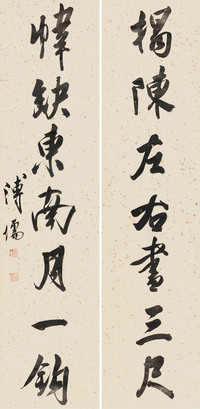 揭陳左右書三尺
幃缺東南月一鈎
溥儒